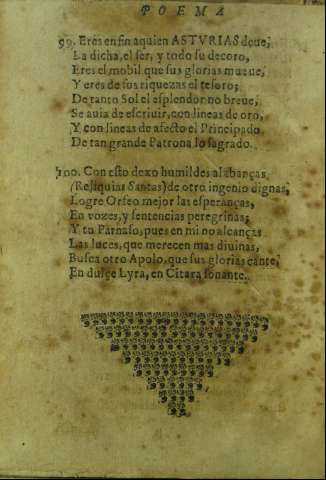 POEMA
99. Eres en fin aquien ASTVRIAS deue,
La dicha, el ser, y todo su decoro,
Eres el mobil que sus glorias mueue,
Y eres de sus riquezas el tesoro;
De tanto Sol el esplendor no breue,
Se auia de escriuir, con lineas de oro,
Y con lineas de afecto el Principado
De tan grande Patrona lo sagrado.
100. Con esto dexo humildes alabanças
(Reliquias Santas) de otro ingenio dignas,
Logre Orfeo mejor las esperanças,
En vozes, y sentencias peregrinas;
Y tu Parnaso, pues en mi no alcanças
Las luces, que merecen mas diuinas,
Busca otro Apolo, que sus glorias cante,
En dulçe Lyra, en Citara sonante.